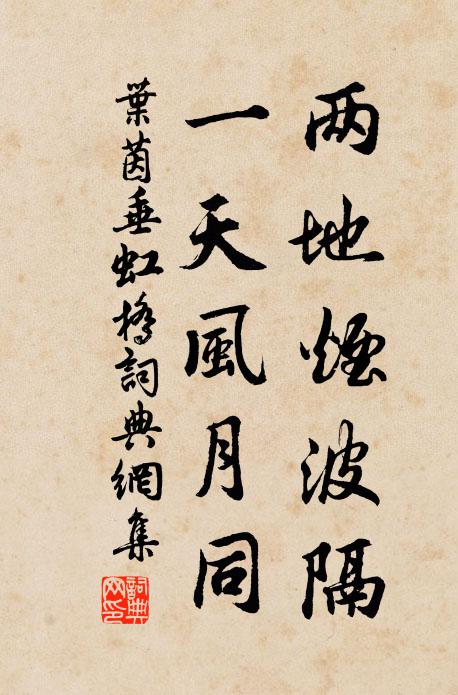 两地煙波隔
一天風月同
葉茵垂虹橋詞典網集
詞典
网印